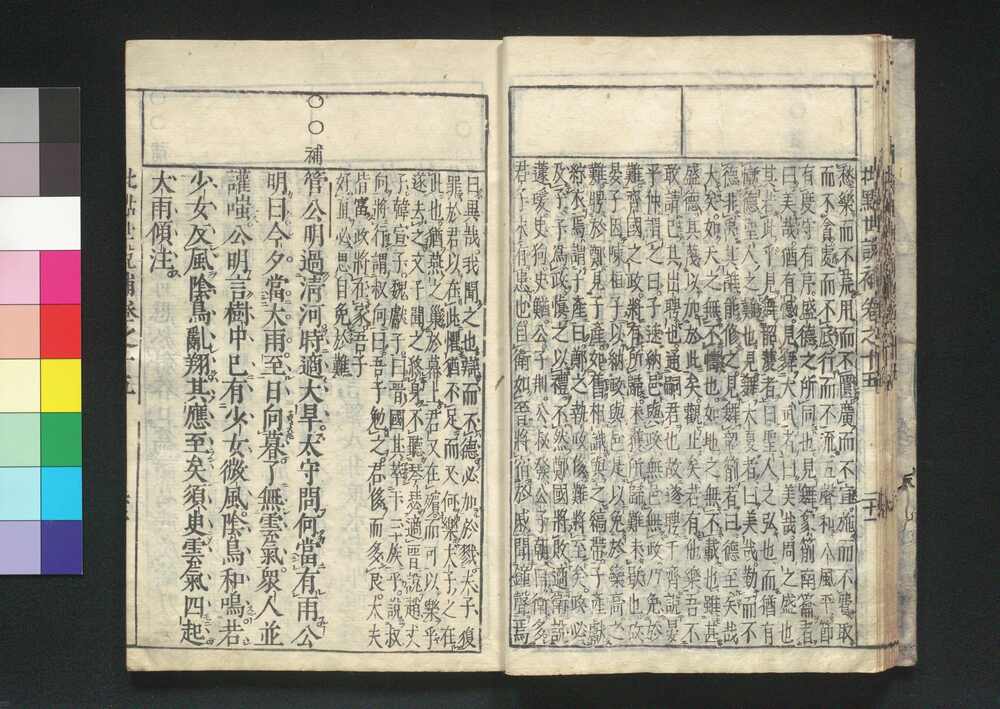 世說新語補卷之十五
愁樂而不荒用而不匱廣而不宣施而不費取
而不貪處而不底行而不流五聲和八風平節
有度守有序盛德之所同也見舞象箾南籥者
曰美哉猶有憾見舞大武者曰美哉周之盛也
其若此乎見舞韶濩者曰聖人之弘也而猶有
慚德聖人之難也見舞大夏者曰美哉勤而不
德非禹其誰能修之見舞韶箾者曰德至矣哉
大矣如天之無不幬也如地之無不載也雖甚
盛德其蔑以加於此矣觀止矣若有他樂吾不
敢請已其出聘也通嗣君也故遂聘于齊說晏
平仲謂之曰子速納邑與政無邑無政乃免於
難齊國之政將有所歸未獲所歸難未歇也故
晏子因陳桓子以納政與邑是以免於欒高之
難聘於鄭見子產如舊相識與之縞帶子產獻
紵衣焉謂子產曰鄭之執政侈難將至矣政必
及子子爲政慎之以禮不然鄭國將敗適衛說
蘧瑗史狗史鰌公子荊公叔發公子朝曰衛多
君子未有患也自衛如晉將宿於戚聞鐘聲焉
曰異哉我聞之也辯而不德必加於戮夫子獲
罪於君以在此懼猶不足而又何樂夫子之在
此也猶燕之巢於幕上君又在殯而可以樂乎
遂去之文子聞之終身不聽琴瑟適晉說趙文
子韓宣子魏獻子曰晉國其萃于三族乎說叔
向將行謂叔向曰吾子勉之君侈而多良大夫
皆富政將在家吾子
好直必思自免於難
○○補 管公明過清河時適大旱太守問何當有雨公
明曰今夕當大雨至日向暮了無雲氣衆人並
讙嗤公明言樹中已有少女微風陰鳥和鳴若
少女反風陰鳥亂翔其應至矣須臾雲氣四起
大雨傾注